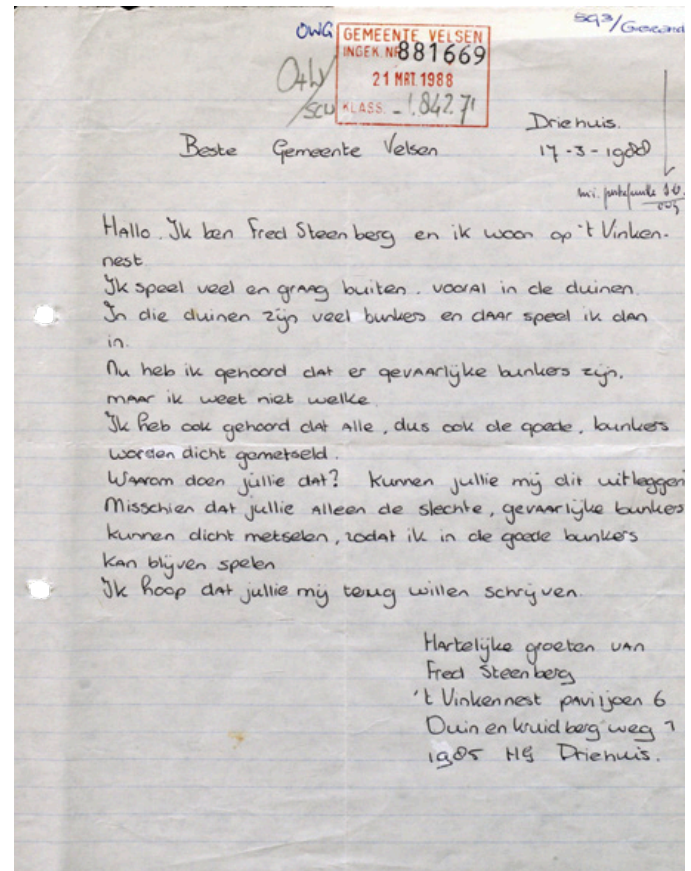 OWG
GEMEENTE VELSEN
INGEK. NR 881669
21 MRT. 1988
KLASS. -1.842.71
Driehuis.
Beste Gemeente Velsen 17-3-1988
Hallo. Ik ben Fred Steenberg en ik woon op 't Vinken-
nest.
Ik speel veel en graag buiten. vooral in de duinen.
In die duinen zijn veel bunkers en daar speel ik dan
in.
Nu heb ik gehoord dat er gevaarlijke bunkers zijn,
maar ik weet niet welke.
Ik heb ook gehoord dat alle, dus ook de goede, bunkers
worden dicht gemetseld.
Waarom doen jullie dat? Kunnen jullie mij dit uitleggen
Misschien dat jullie alleen de slechte, gevaarlijke bunkers
kunnen dicht metselen, zodat ik in de goede bunkers
kan blijven spelen
Ik hoop dat jullie mij terug willen schrijven.
Hartelijke groeten van
Fred Steenberg
't Vinkennest paviljoen 6
Duin en kruidberg weg
1985 HG Driehuis.